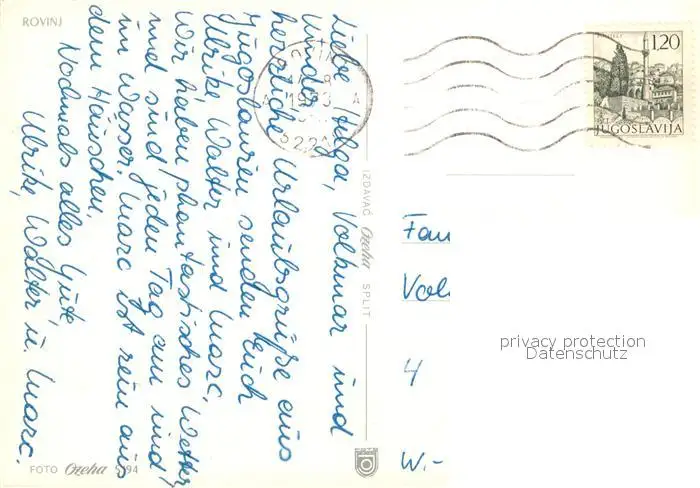 ROVINJ
Liebe Helga, Volkmar und
herzliche Urlaubsgrüße aus
Jugoslawien senden Euch
Ulrike Walter und Marc.
Wir haben phantastisches Wetter
und sind jeden Tag am und
im Wasser. Marc ist rein aus
dem Häuschen.
Nochmals alles Gute,
Ulrike, Walter u. Marc.
FOTO Ozeha 5194
IZDAVAČ Ozeha SPLIT
1973
A
1,20
JUGOSLAVIJA
Fam
Vol
4
W.-
privacy protection
Datenschutz